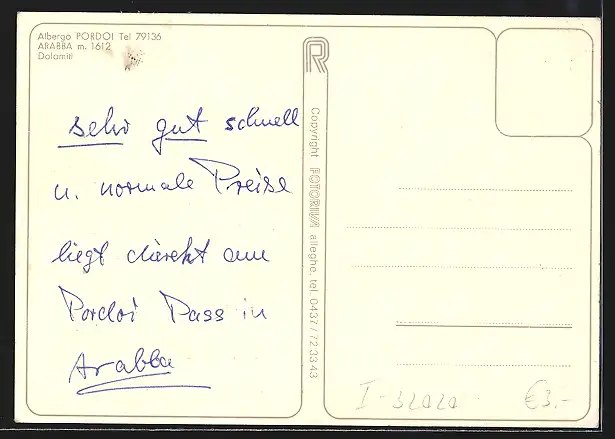 Albergo PORDOI Tel 79136
ARABBA m. 1612
Dolomiti
sehr gut schnell
u. normale Preise
liegt direkt am
Pordoi Pass in
Arabba
R
Copyright FOTORIVA alleghe, tel. 0437/723343
I-32020
€3.-